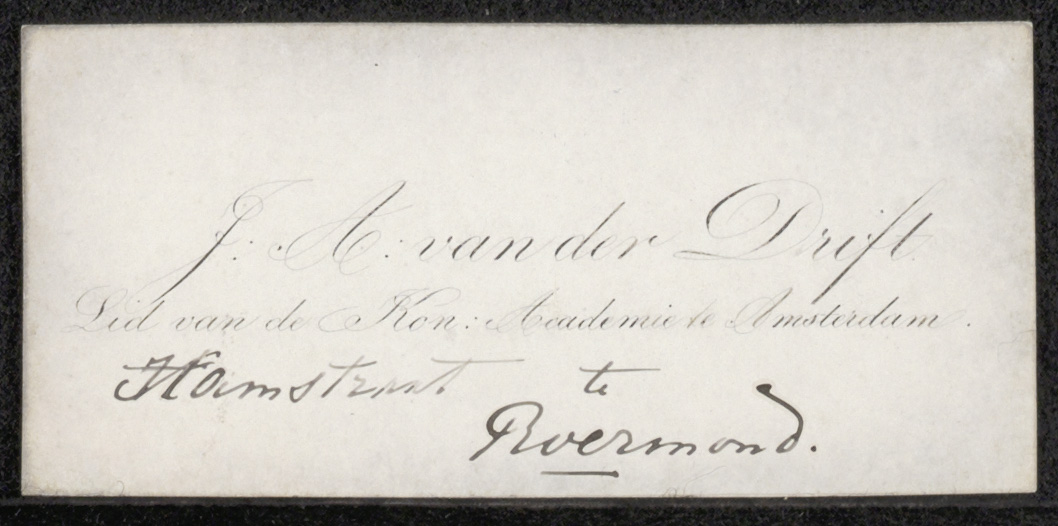 J: A: van der Drift
Lid van de Kon: Academie te Amsterdam.
Hamstraat te
Roermond.